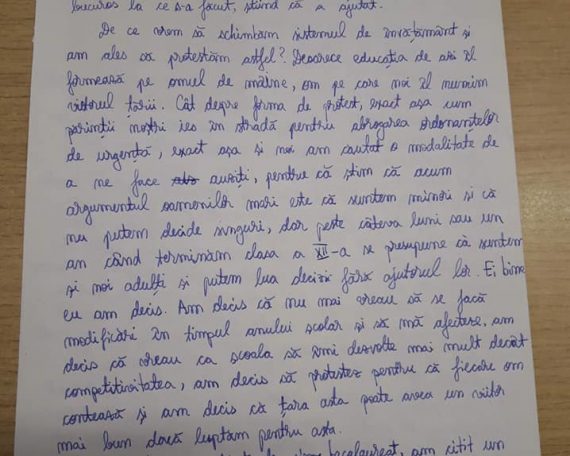 bucuros la ce s-a făcut, știind că a ajutat.
De ce vrem să schimbăm sistemul de învățământ și
am ales să protestăm astfel? Deoarece educația de azi îl
formează pe omul de mâine, om pe care noi îl numim
viitorul țării. Cât despre forma de protest, exact așa cum
părinții noștri ies în stradă pentru abrogarea ordonanțelor
de urgență, exact așa și noi am căutat o modalitate de
a ne face auziți, pentru că știm că acum
argumentul oamenilor mari este că suntem minori și că
nu putem decide singuri, dar peste câteva luni sau un
an când terminăm clasa a XII-a se presupune că suntem
și noi adulți și putem lua decizii fără ajutorul lor. Ei bine
eu am decis. Am decis că nu mai vreau să se facă
modificări în timpul anului școlar și să mă afecteze, am
decis că vreau ca școala să îmi dezvolte mai mult decât
competitivitatea, am decis să protestez pentru că fiecare om
contează și am decis că țara asta poate avea un viitor
mai bun dacă luptăm pentru asta.
bacalaureat, am citit un